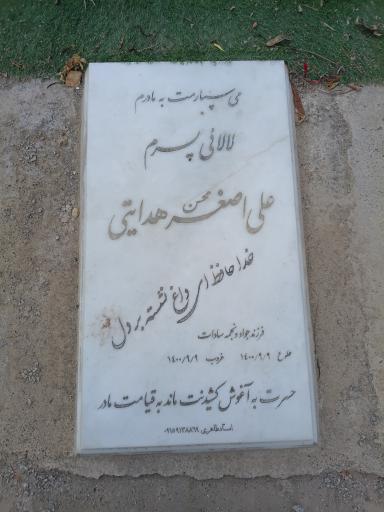 می سپارمت به مادرم
لالائی پسرم
محسن
علی اصغر هدایتی
خدا حافظ ای داغ نشسته بر دل
فرزند جواد و نجمه سادات
طلوع ۱۴۰۰/۹/۹ غروب ۱۴۰۰/۹/۹
حسرت به آغوش کشیدنت ماند به قیامت مادر
استاد طاهری ۰۹۱۵۹۱۳۸۸۶۹